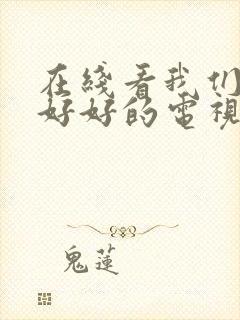 在綫看我们
好好的電視
鬼蓮